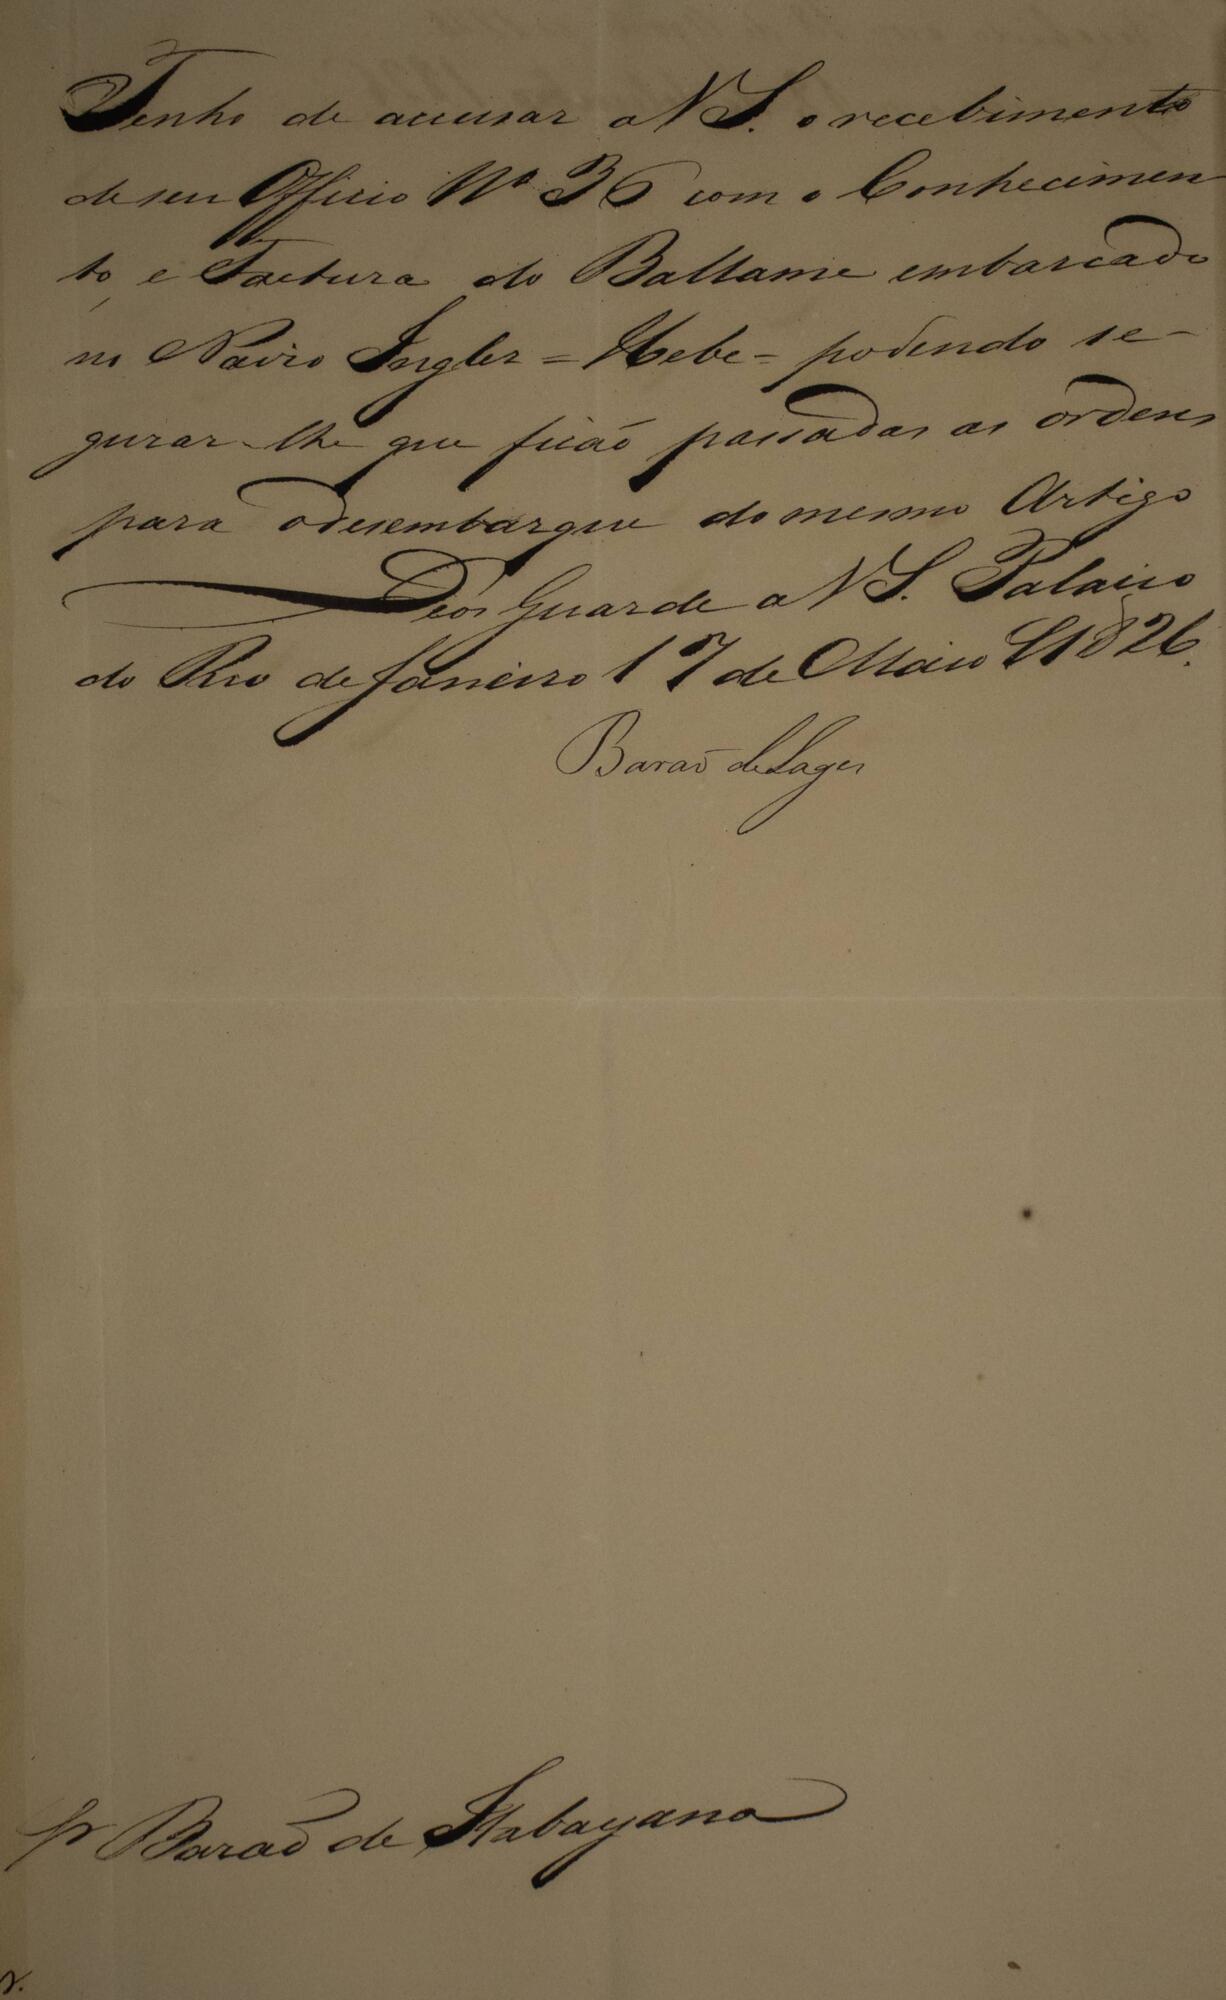 Tenho de accusar a V S. o recebimento
de seu Officio Nº 36 com o Conhecimen
to, e Factura do Ballame embarcado
no Navio Inglez = Hebe = podendo se-
gurar-lhe que ficão passadas as ordens
para o desembarque do mesmo Artigo
Deos Guarde a V S. Palacio
do Rio de Janeiro 17 de Maio 1826.
Barão de Lages
Sr Barão de Itabayana